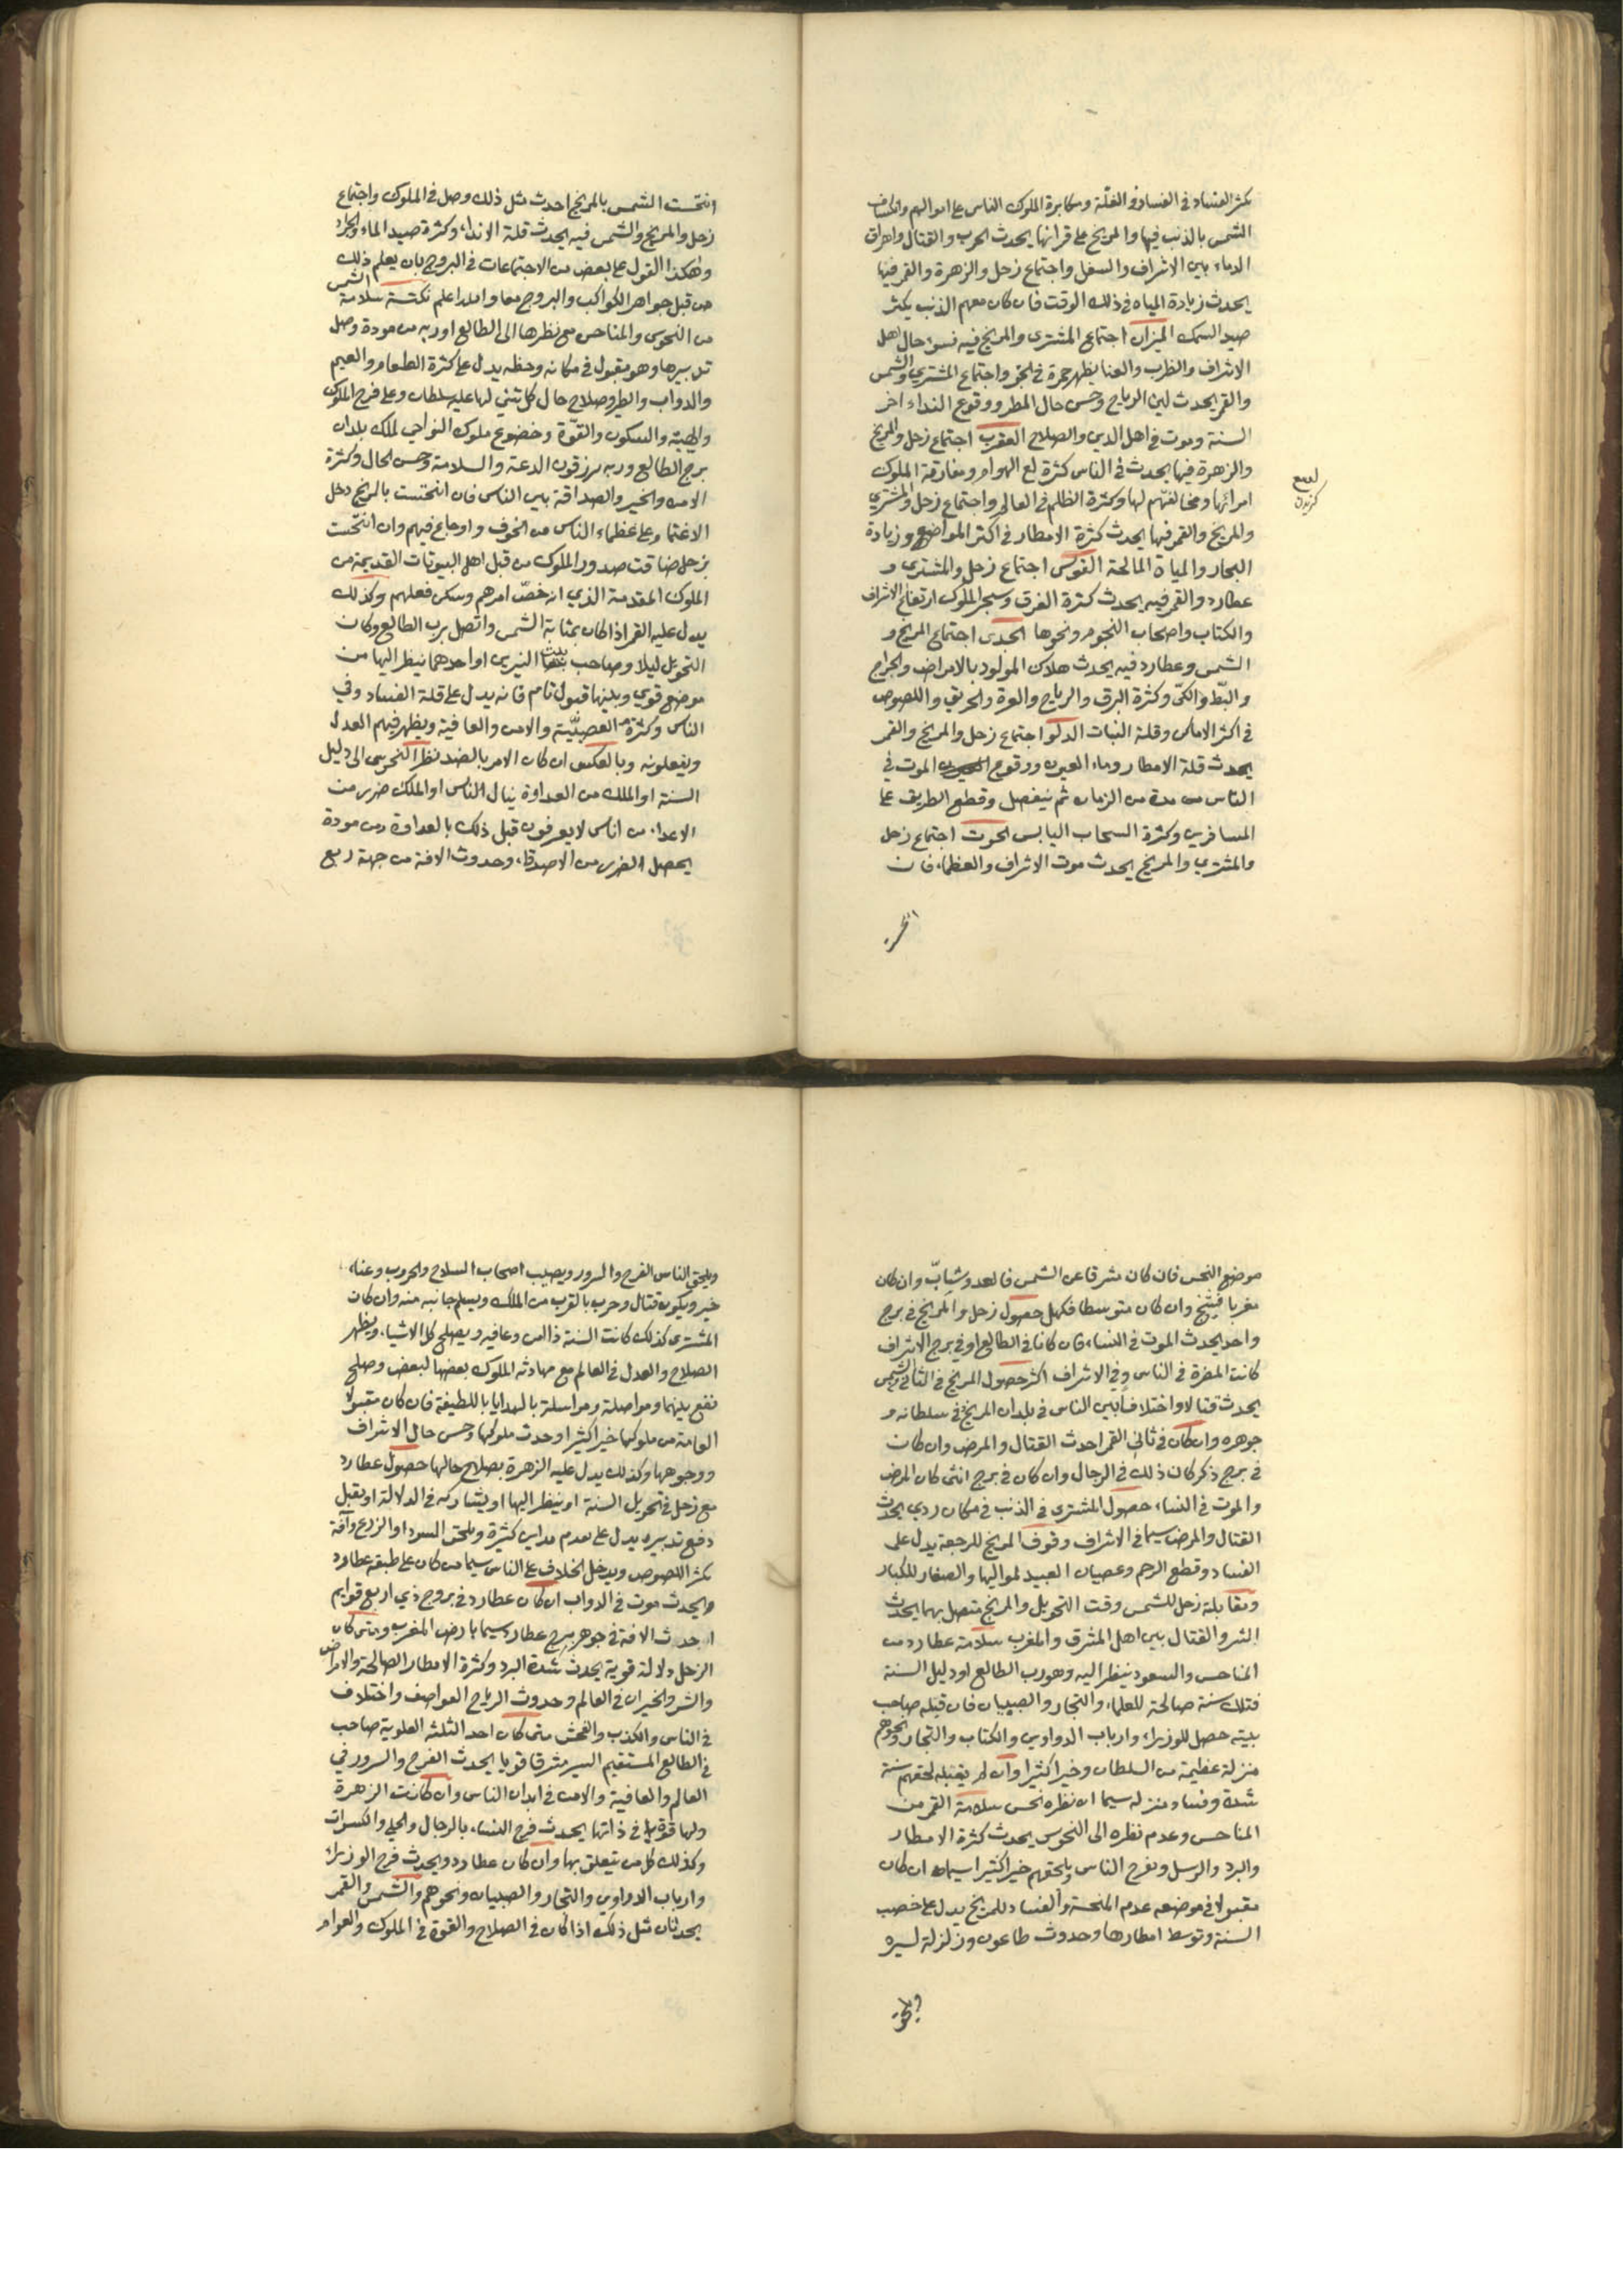 يكثر الفساد في الفساد في الغلة ومكابرة الملوك الناس على اموالهم وانكساف
الشمس بالذنب فيها والمريخ على قرانها يحدث الحرب والقتال واهراق
الدماء بين الاشراف والسفل واجتماع زحل والزهرة والقمر فيها
يحدث زيادة المياه في ذلك الوقت فان كان معهم الذنب يكثر
صيد السمك الميزان اجتماع المشترى والمريخ فيه تسوء حال اهل
الاشراف والطرب والغنا يظهر حمرة في الجو واجتماع المشتري والشمس
والقمر يحدث لين الرياح وحسن حال المطر ووقوع النداء اخر
السنة وموت في اهل الدين والصلاح العقرب اجتماع زحل والمريخ
والزهرة فيها يحدث في الناس كثرة لع الهوام ومفارقة الملوك
لسع
امرائها ومخالفتهم لها وكثرة الظلم في العالم واجتماع زحل والمشتري
والمريخ والقمر فيها يحدث كثرة الامطار في اكثر المواضع وزيادة
البحار والمياة المالحة القوس اجتماع زحل والمشترى و
عطارد والقمر فيه يحدث كثرة الغرق وسحر الملوك ارتفاع الاشراف
والكتاب واصحاب النجوم ونحوها الجدى اجتماع المريخ و
الشمس وعطارد فيه يحدث هلاك المولود بالامراض والجراح
والبّط والكىّ وكثرة البرق والرياح والعرة والحريق واللصوص
في اكثر الاماكن وقلة النبات الدلو اجتماع زحل والمريخ والقمر
يحدث قلة الامطار وماء العيون ووقوع الموت في
الناس من مدة من الزمان ثم ينفصل وقطع الطريق على
المسافرين وكثرة السحاب اليابس الحوت اجتماع زحل
والمشتري والمريخ يحدث موت الاشراف والعظماء فان
انتحست الشمس بالمريخ احدث مثل ذلك وصل في الملوك واجتماع
زحل والمريخ والشمس فيه يحدث قلة الانداء وكثرة صيد الماء والجراد
وهكذا القول على بعض من الاجتماعات في البروج بان يعلم ذلك
من قبل جواهر الكواكب والبروج معا والله اعلم نكتة سلامة الشمس
من النحوس والمناحس مع نظرها الى الطالع او ربه من مودة وصل
تدبيرها وهو مقبول في مكانه وحظه يدل على كثرة الطعام والعيم
والدواب والطير وصلاح حال كل شئ لها عليه سلطان وعلى فرح الملوك
والهيبة والسكون والقوّة وخضوع ملوك النواحي لملك بلدان
برج الطالع وربه يرزقون الدعة والسلامة وحسن الحال وكثرة
الامن والخير والصداقة بين الناس فان انتحست بالمريخ دخل
الاغتمام على عظماء الناس من الخوف واوجاع فيهم وان انتحست
بزحل ضاقت صدور الملوك من قبل اهل البيوتات القديمة من
الملوك المقدمة الذي انخصّ امرهم وسكن فعلهم وكذلك
يدل عليه القمر اذا كان بمثابة الشمس واتصل برب الطالع وكان
التحويل ليلا وصاحب بيت النيرين او احدهما ينظر اليها من
موضع قوي وبينها قبول تام فانه يدل على قلة الفساد وفي
الناس وكثرة العصبيّة والامن والعافية ويظهر فيهم العدل
ويفعلونه وبالعكس ان كان الامر بالضد نظر النحوس الى دليل
السنة او الملك من العداوة ينال الناس او الملك ضرر من
الاعداء من اناس لا يعرفون قبل ذلك بالعداوة ومن مودة
يحصل الضرر من الاصدقاء وحدوث الافة من جهة ربع
موضع النحس فان كان مشرقا عن الشمس فالعدو شابّ وان كان
مغربا فشيخ وان كان متوسطا فكهل حصول زحل والمريخ في برج
واحد يحدث الموت في النساء فان كانا في الطالع او في برج الاشراف
كانت المضرة في الناس وفي الاشراف اكثر حصول المريخ في الثاني والشمس
يحدث قتالا واختلافا بين الناس في بلدان المريخ وفي سلطانه و
جوهره وان كان في ثاني القمر احدث القتال والمرض وان كان
في برج ذكر كان ذلك في الرجال وان كان في برج انثى كان المرض
والموت في النساء حصول المشترى في الذنب في مكان ردي يحدث
القتال والمرض سيما في الاشراف وقوف المريخ للرجعة يدل على
الفساد وقطع الرحم وعصيان العبيد لمواليها والصغار للكبار
ومقابلة زحل للشمس وقت التحويل والمريخ متصل بهما يحدث
الشر والقتال بين اهل المشرق والمغرب سلامة عطارد من
المناحس والسعود ينظر اليه وهو رب الطالع او دليل السنة
فتلك سنة صالحة للعلماء والتجار والصبيان فان قبله صاحب
بيته حصل للوزراء وارباب الدواوين والكتاب والتجار ونحوهم
منزلة عظيمة من السلطان وخيرا كثيرا وان لم يقبله لحقهم سنة
شدة وفساد منزله سيما ان نظره نحس سلامة القمر من
المناحس وعدم نظره الى النحوس يحدث كثرة الامطار
والبرد والرسل وبفرح الناس ويلحقهم خيرا كثيرا سيما ان كان
مقبولا في موضعه عدم المنحسة والفساد للمريخ يدل على خصب
السنة وتوسط امطارها وحدوث طاعون وزلزلة يسيره
ويلحق الناس الفرح والسرور ويصيب اصحاب السلاح والحروب وعناء
خير ويكون قتال وحرب بالقرب من الملك ويسلم جانبه منه وان كان
المشترى كذلك كانت السنة ذا امن وعافيه ويصلح كل الاشياء ويظهر
الصلاح والعدل في العالم مع مهادنة الملوك بعضها لبعض وصلح
نفع بينهما ومواصلة ومراسلة بالهدايا باللطيفة فان كان مقبولا
العامة من ملوكها خيرا كثيرا وحدث ملوكها وحسن حال الاشراف
ووجوهها وكذلك يدل عليه الزهرة بصلاح حالها حصول عطارد
مع زحل في تحويل السنة او ينظر اليها او يشاركه في الدلالة او يقبل
دفع تدبيره يدل على هدم مداين كثيرة ويلحق السودا والزرع وآفة
يكثر اللصوص ويدخل الخلاف على الناس سيما من كان على طبقة عطارد
ويحدث موت في الدواب ان كان عطارد في بروج ذي اربع قوايم
احدث الافة في جوهر برج عطارد سيما بارض المغرب ومتى كان
الزحل دلالة قوية يحدث شدة البرد وكثرة الامطار الصالحة والامراض
والشر والخيران في العالم وحدوث الرياح العواصف واختلاف
في الناس والكذب والفحش متى كان احد الثلثة العلوية صاحب
في الطالع المستقيم السير مشرقا قويا يحدث الفرح والسرور في
العالم والعافية والامن في ابدان الناس وان كانت الزهرة
ولها قوة في ذاتها يحدث فرح النساء بالرجال والحلي والكسوات
وكذلك كل من يتعلق بها وان كان عطارد ويحدث فرح الوزراء
وارباب الدواوين والتجار والصبيان ونحوهم والشمس والقمر
يحدثان مثل ذلك اذا كان في الصلاح والقوة في الملوك والعوام